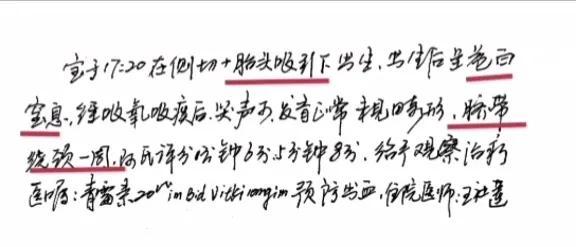 宝于17:20在侧切+胎头吸引下出生,出生后呈苍白
窒息,经吸氧吸痰后,哭声可,发育正常未见畸形,脐带
绕颈一周,阿氏评分1分钟6分,5分钟8分,给予观察治疗
医嘱:青霉素20wim Bid Vitk1 10mg im 预防出血,住院医师:王社莲